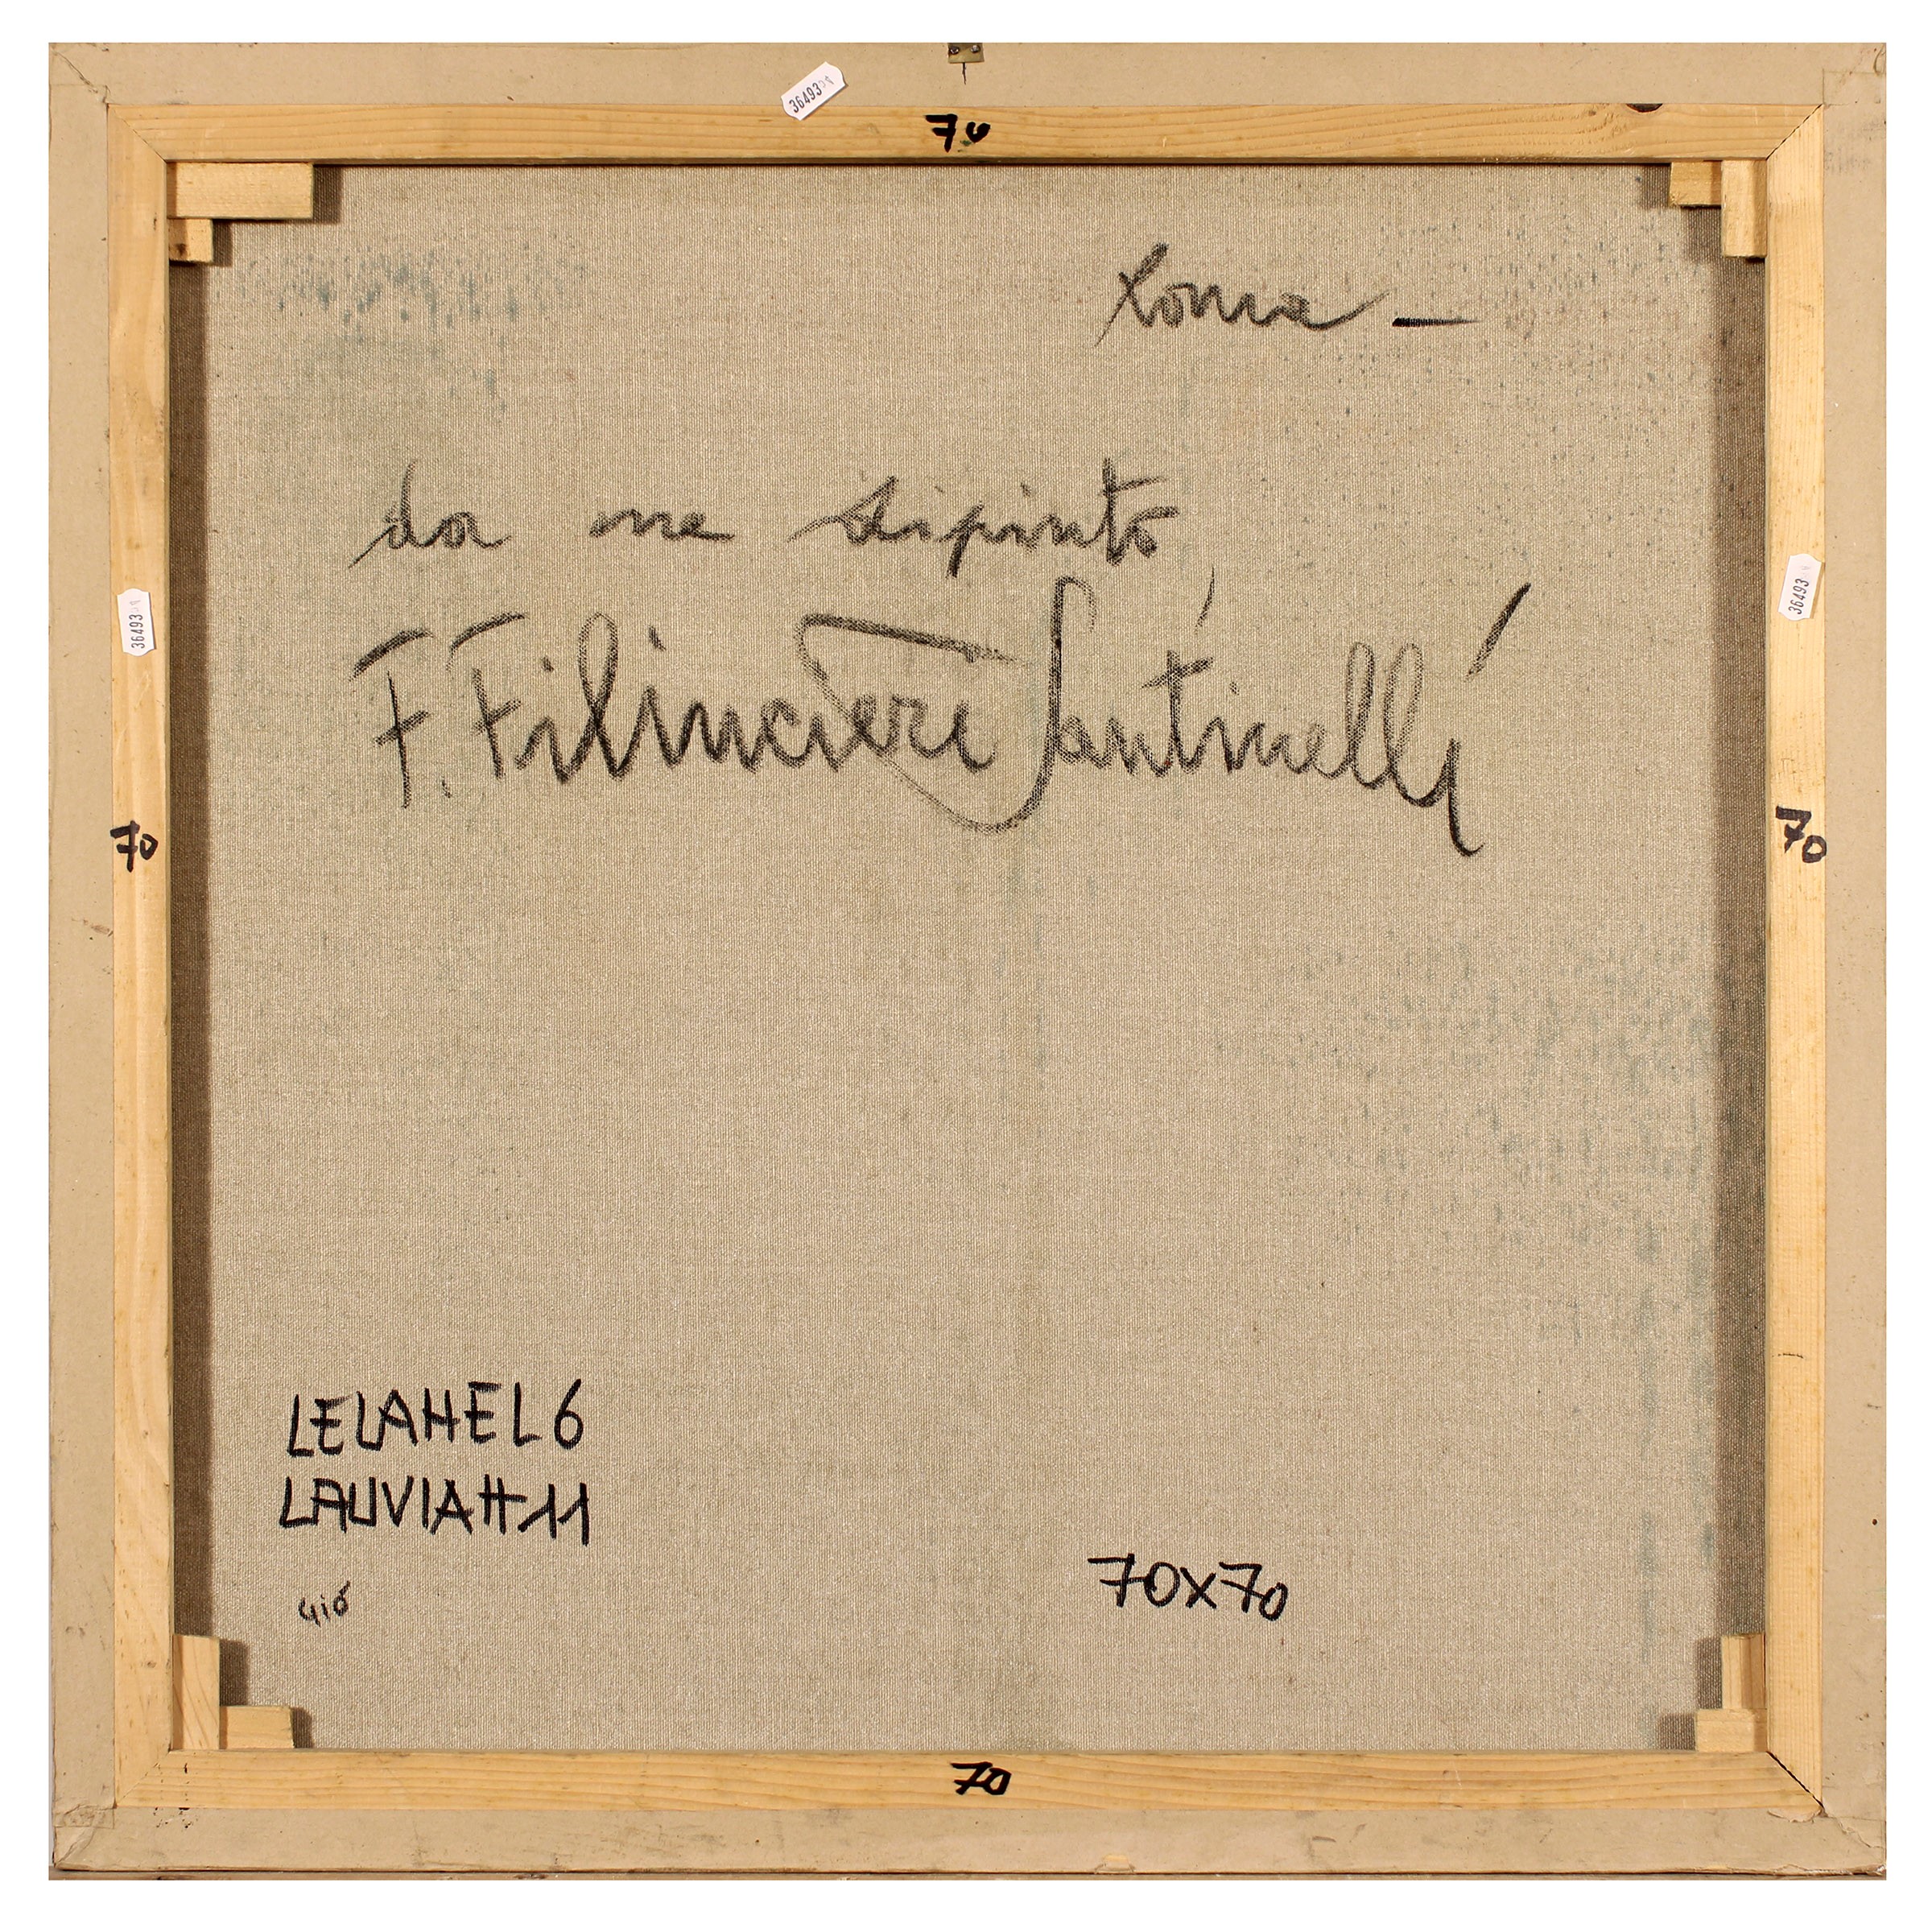 36493
70
Roma -
da me dipinto,
F. Filincieri Santinelli
36493
36493
70
70
LELAHEL 6
LAUVIAH 11
Gió
70x70
70